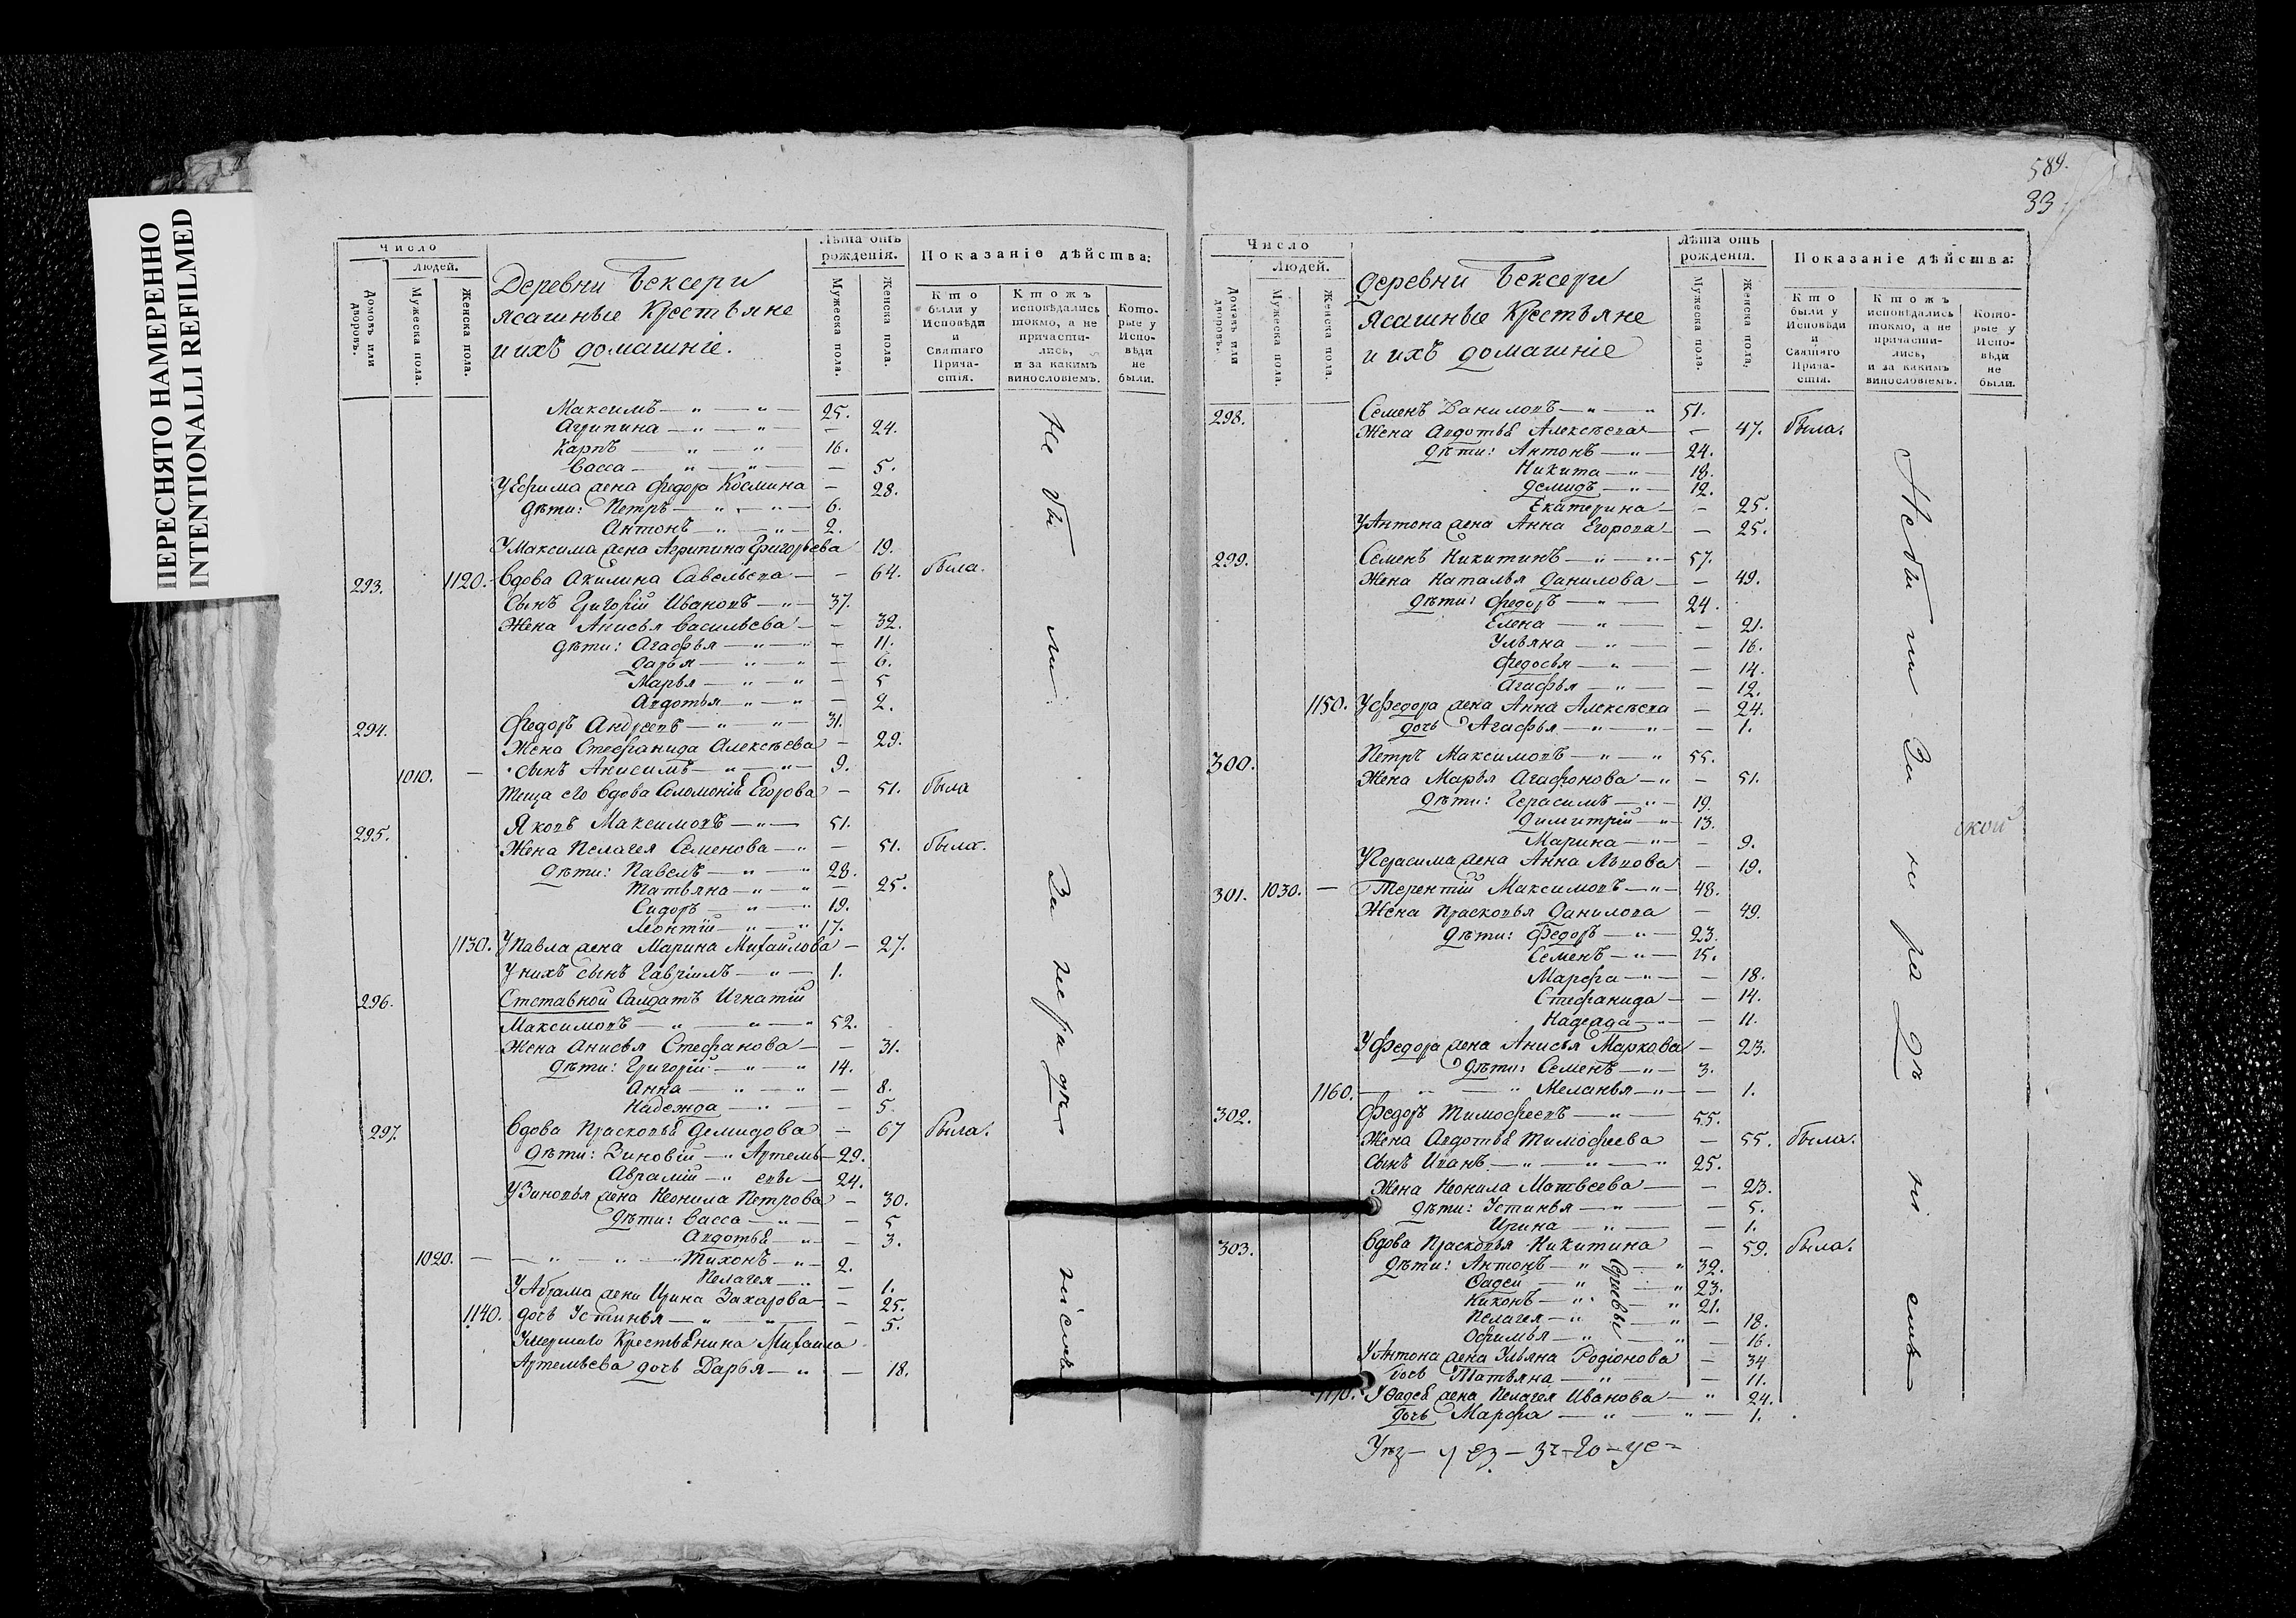 ПЕРЕСНЯТО НАМЕРЕННО
INTENTIONALLI REFILMED
Число
Людей.
Домовъ или дворовъ.
Мужеска пола.
Женска пола.
Деревни Бексери
ясашные Крестьяне
и ихъ домашніе.
Лѣта отъ рожденія.
Мужеска пола.
Женска пола.
Показаніе дѣйства:
Кто были у Исповѣди и Святаго Причастія.
Ктожъ исповѣдались токмо, а не причастились, и за какимъ винословіемъ.
Которые у Исповѣди не были.
Максимъ — " — " — 25.
Агрипина — " — " — 24.
Карпъ — " — " 16.
Васса — " — " — 5.
У Ефима жена Федора Космина — 28.
Дѣти: Петръ — " — " — 6.
Антонъ — " — " — 2.
У Максима жена Агрипина Григорьева 19.
293. 1120. Вдова Акилина Савельева — — 64. была.
Сынъ Григорій Ивановъ — " — 37.
Жена Анисья Васильева — — 32.
дѣти: Агафья — " — " — 11.
Дарья — " — " — 6.
Марья — " — " — 5
Авдотья — " — " — 2.
294. Федоръ Андреевъ — " — " — 31.
Жена Стефанида Алексѣева — 29.
1010. — Сынъ Анисимъ — " — " — 9.
Теща его Вдова Соломонія Егорова — 51. была
295. Яковъ Максимовъ — " — 51.
Жена Пелагея Семенова — " — 51. была.
Дѣти: Павелъ — " — " 28.
Татьяна — " — " — 25.
Сидоръ — " — " 19.
Леонтій — " — " 17.
1130. У Павла жена Марина Михайлова — 27.
У нихъ сынъ Гавріилъ — " — 1.
296. Отставной Салдатъ Игнатій
Максимовъ — " — " — " 52.
Жена Анисья Стефанова — — 31.
Дѣти: Григорій — " — " 14.
Анна — " — " — 8.
Надежда — " — — 5.
297. Вдова Прасковья Демидова — 67 была.
Дѣти: Зиновій — " Артемь — 29.
Аврамій — " евы — 24.
У Зиновья жена Неонила Петрова — 30.
Дѣти: Васса — " — — 5
Авдотья — " — — 3.
1020. — " — " — Тихонъ — " — 2.
Пелагея — " — 1.
У Абрама жена Ирина Захарова — — 25.
1140. дочь Устинья — " — " — 5.
Умершаго Крестьянина Михаила
Артемьева дочь Дарья — " — 18.
Не были За нерадѣніемъ
589.
33
Число
Людей.
Домовъ или дворовъ.
Мужеска пола.
Женска пола.
Деревни Бексери
ясашные Крестьяне
и ихъ домашніе
Лѣта отъ рожденія.
Мужеска пола.
Женска пола,
Показаніе дѣйства:
Кто были у Исповѣди и Святаго Причастія.
Ктожъ исповѣдались токмо, а не причастились, и за какимъ винословіемъ.
Которые у Исповѣди не были.
298. Семенъ Даниловъ — " — " 51.
Жена Авдотья Алексѣева — — 47. была.
Дѣти: Антонъ — " — 24.
Никита — " — 18.
Демидъ — " — 12.
Екатерина — — 25.
У Антона жена Анна Егорова — — 25.
299. Семенъ Никитинъ — " — " — 57.
Жена Наталья Данилова — — 49.
Дѣти: Федоръ — " — 24.
Елена — " — — 21.
Ульяна — " — — 16.
Федосья — " — — 14.
Агафья — " — — 12.
1150. У Федора жена Анна Алексѣева — 24.
дочь Агафья — " — " — — 1.
300. Петръ Максимовъ — " — " — 55.
Жена Марья Агафонова — " — 51.
Дѣти: Герасимъ — " — 19.
Димитрій — " — 13.
Марина — " — — 9.
У Герасима жена Анна Львова — 19.
301. 1030. — Терентій Максимовъ — " — 48.
Жена Прасковья Данилова — 49.
Дѣти: Федоръ — " — 23.
Семенъ — " — 15.
Марфа — " — — 18.
Стефанида — — 14.
Надежда — " — — 11.
У Федора жена Анисья Маркова — 23.
Дѣти: Семенъ — " — 3.
1160. — " — " Меланья — " — — 1.
302. Федоръ Тимофеевъ — " — 55.
Жена Авдотья Тимофеева — 55. была.
Сынъ Иванъ — " — " — " 25.
Жена Неонила Матвеева — — 23.
Дѣти: Устинья — " — — 5.
Ирина — " — — 1.
303. Вдова Прасковья Никитина — 59. была.
Дѣти: Антонъ — " — " 32.
Фадей — " — " 23.
Никонъ — " — " 21.
Пелагея — " — " — 18.
Офимья — " — " — 16.
У Антона жена Ульяна Родіонова — 34
дочь Татьяна — " — — 11.
1170. У Фадея жена Пелагея Иванова — " 24.
дочь Марфа — " — " — 1.
Не были За нерадѣніемъ
ской